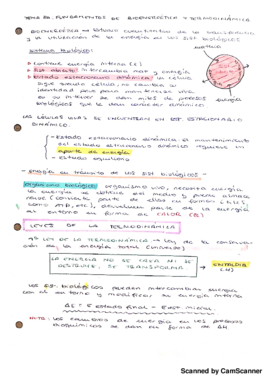 TEMA 22. FUNDAMENTOS DE BIOENERGÉTICA Y TERMODINÁMICA
BIOENERGÉTICA → ESTUDIO CUANTITATIVO DE LA TRANSFERENCIA
Y LA UTILIZACIÓN DE LA ENERGÍA EN LOS SIST. BIOLÓGICOS
materia
SISTEMA BIOLÓGICO:
contiene energía interna (E)
Sist. abierto: intercambia mat. y energía
Estado estacionario dinámico: la célula
sigue siendo célula, no cambia su
identidad pero para mantenerse viva
en su interior se dan miles de procesos
biológicos que le dan carácter dinámico
energía
LAS CÉLULAS VIVAS SE ENCUENTRAN EN EST. ESTACIONARIO
DINÁMICO.
- Estado estacionario dinámico: el mantenimiento
del estado estacionario dinámico requiere un
aporte de energía
- Estado equilibrio
- ENERGÍA EN TRÁNSITO DE LOS SIST. BIOLÓGICOS -
Organismo biológico: organismo que necesita energía
la energía se obtiene del medio y puede almace
narse (convierte parte de ellos en formas útiles
como ATP, etc), devuelven parte de la energía
al entorno en forma de CALOR (Q)
LEYES DE LA TERMODINÁMICA
1ª LEY DE LA TERMODINÁMICA → Ley de la conserva
ción de la energía total (universo)
LA ENERGÍA NO SE CREA NI SE
DESTRUYE, SE TRANSFORMA
ENTALPÍA
(H)
Los sist. biológicos pueden intercambiar energía
con el entorno y modificar su energía interna
ΔE = E estado final - E est. inicial
NOTA: los cambios de energía en los procesos
bioquímicos se dan en forma de ΔH
Scanned by CamScanner